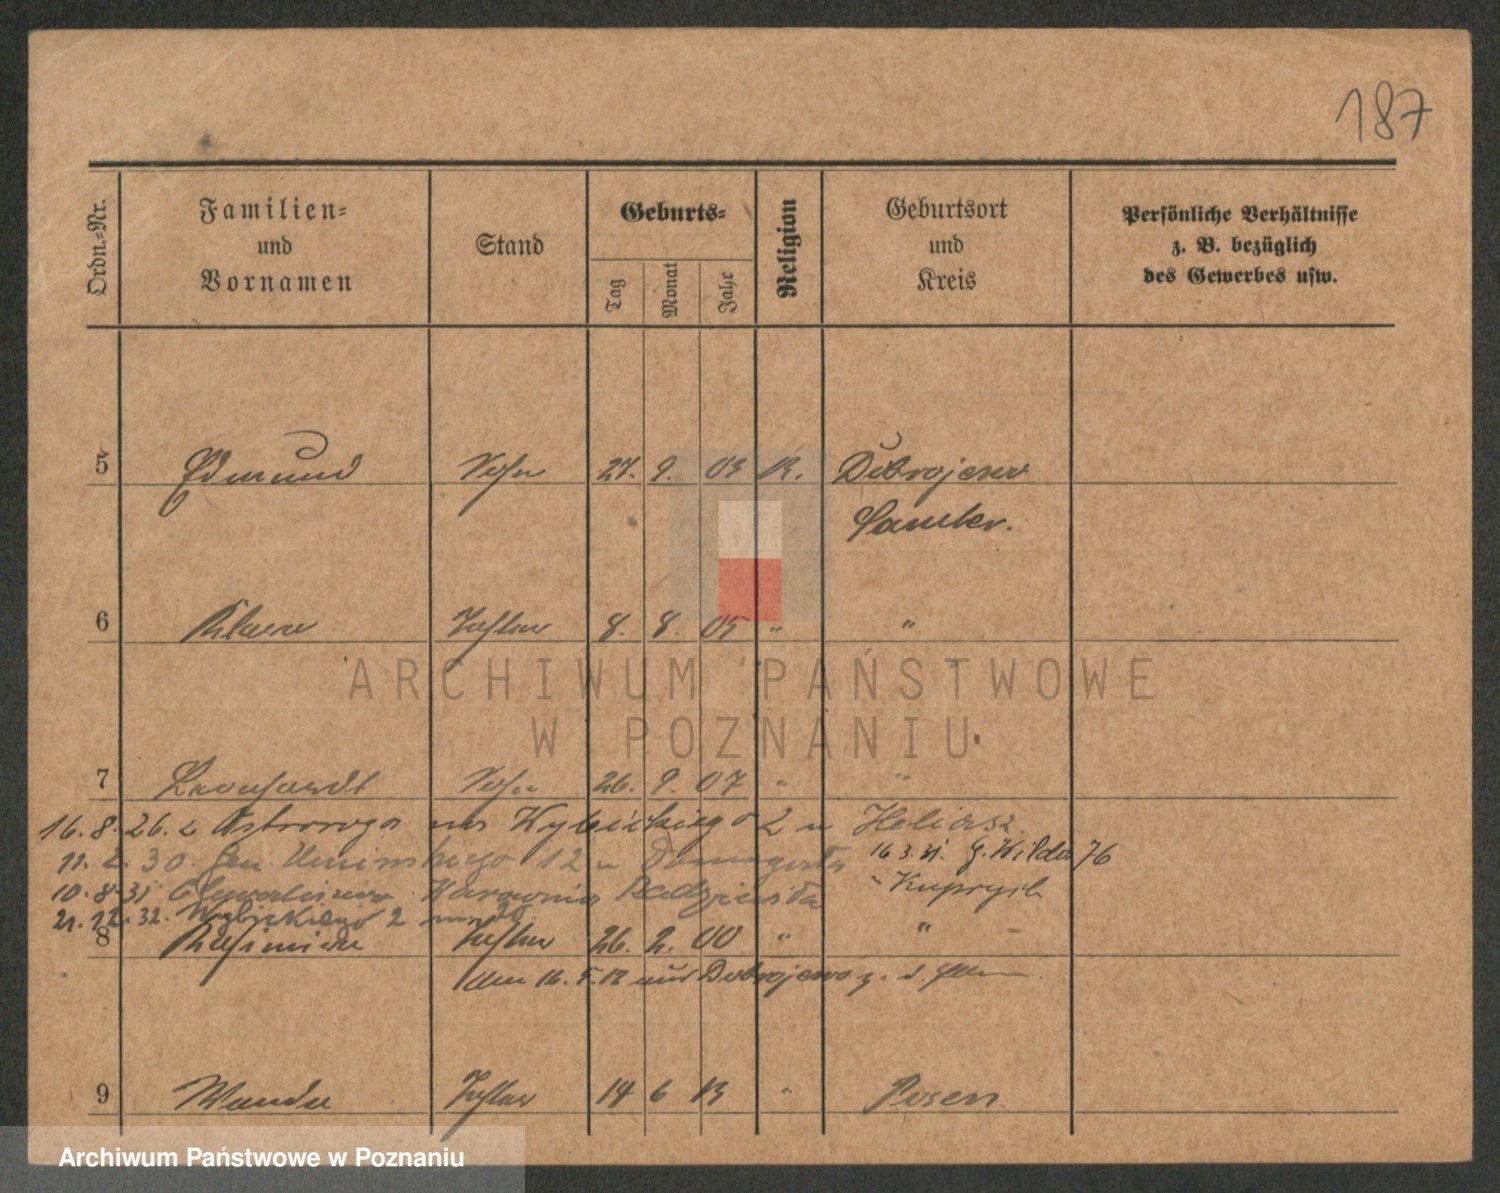 187
Ordn.-Nr.
Familien-
und
Vornamen
Stand
Geburts-
Tag
Monat
Jahr
Religion
Geburtsort
und
Kreis
Persönliche Verhältnisse
z. B. bezüglich
des Gewerbes usw.
5 Edmund Sohn 27. 9. 03 K. Dobrojewo
Samter.
6 Klara Tochter 8. 8. 05 " "
ARCHIWUM PAŃSTWOWE
W POZNANIU
7 Leonhardt Sohn 26. 9. 07 " "
16. 8. 26. z Ostroroga na Wybickiego 2 u Heliasz
11. 2. 30. Gen. Umińskiego 12 u
16 3. 31. G. Wilda 76
10. 8. 31
21. 12. 32. Wybickiego 2
8 Kasimira Tochter 26. 2. 00 " "
Am 16. 5. 12 aus Dobrojewo z. d.
9 Wanda Tochter 14 6 13 " Posen
Archiwum Państwowe w Poznaniu